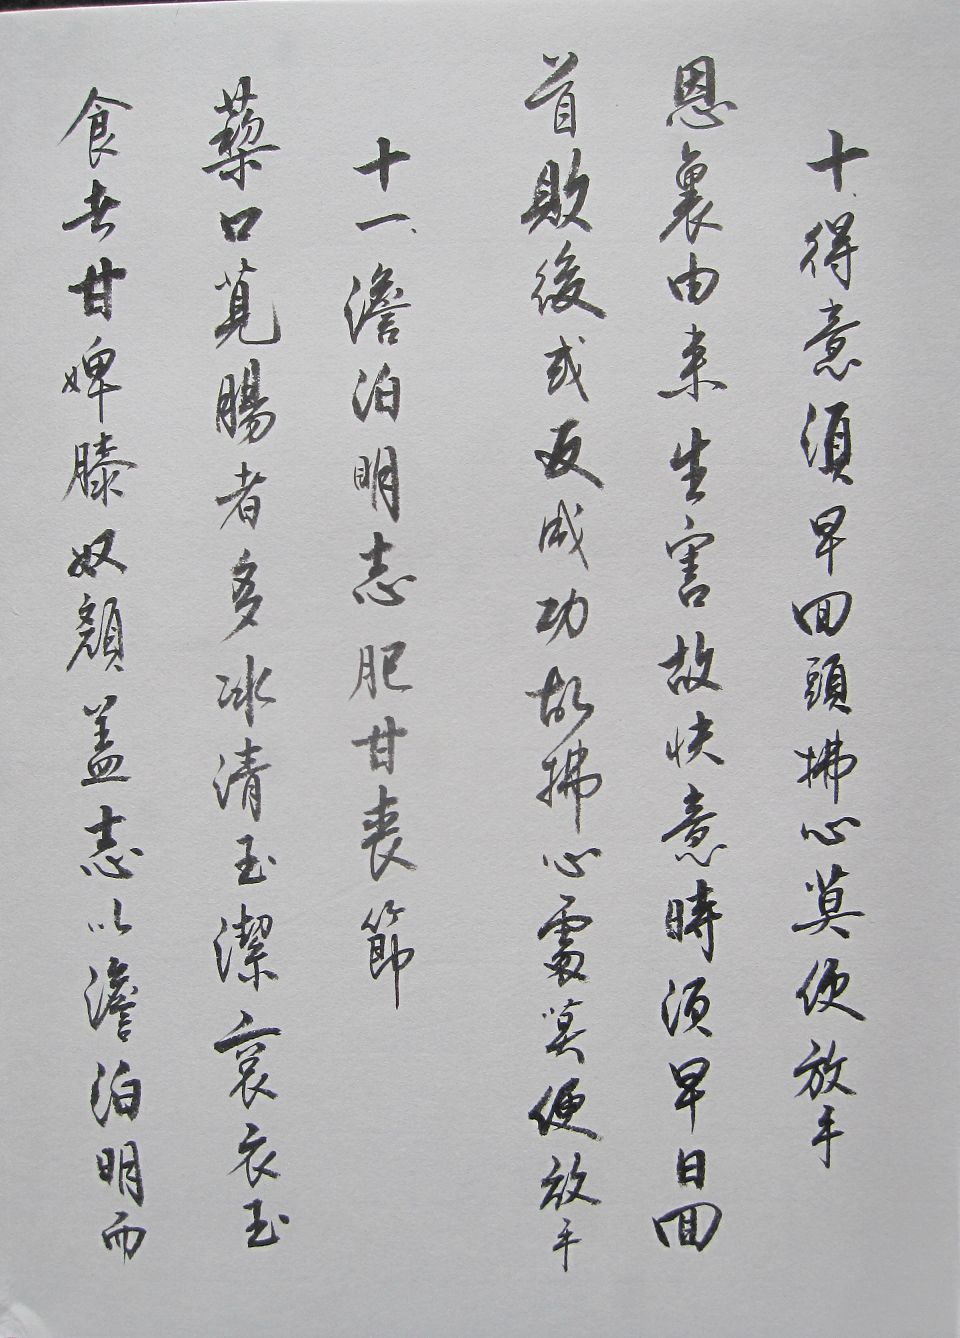 十、得意須早回頭拂心莫便放手
恩裏由來生害故快意時須早日回
首敗後或反成功故拂心處莫便放手
十一、澹泊明志肥甘喪節
藜口莧腸者多冰清玉潔袞衣玉
食者甘婢膝奴顏蓋志以澹泊明而